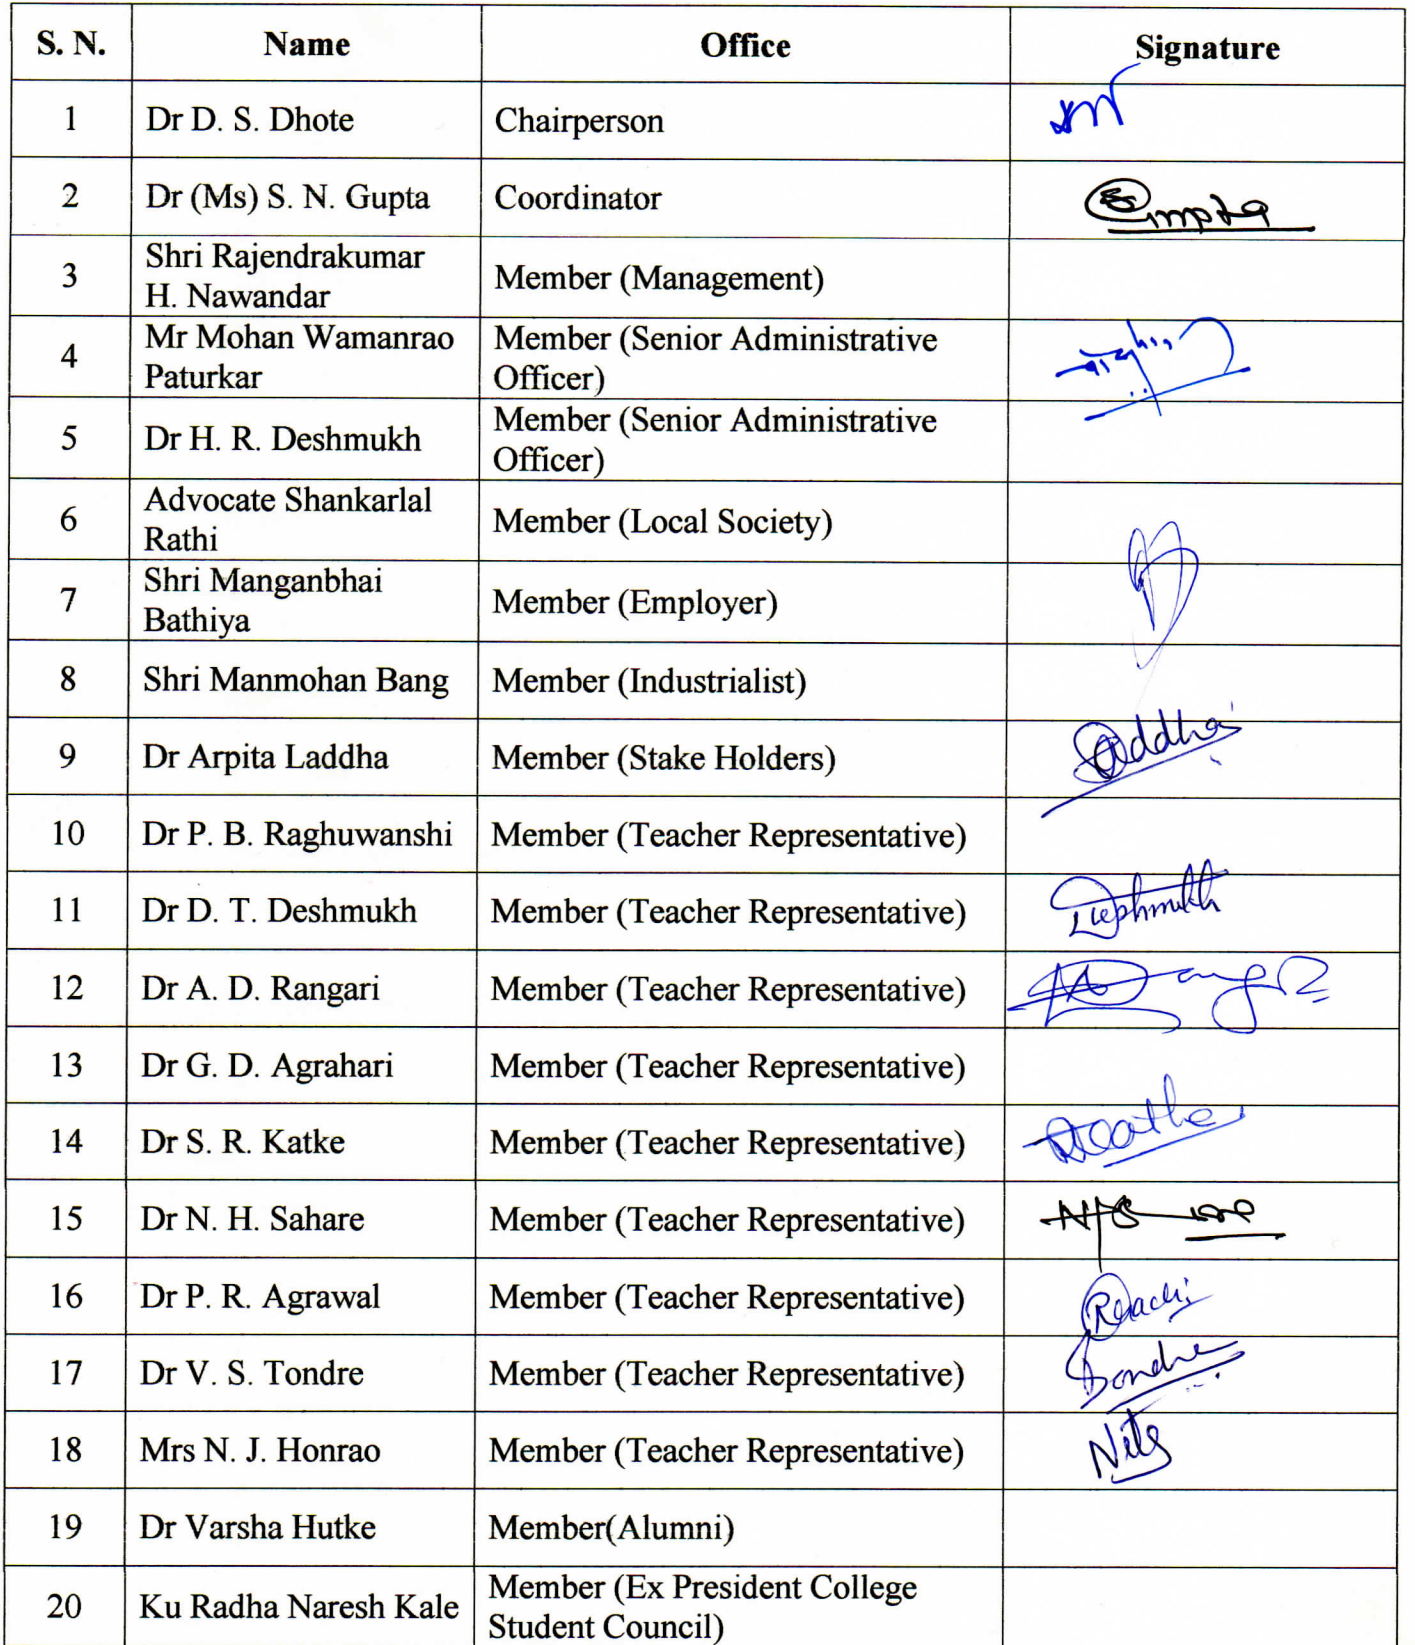 S. N. Name Office Signature
1 Dr D. S. Dhote Chairperson
2 Dr (Ms) S. N. Gupta Coordinator
3 Shri Rajendrakumar
H. Nawandar Member (Management)
4 Mr Mohan Wamanrao
Paturkar Member (Senior Administrative
Officer)
5 Dr H. R. Deshmukh Member (Senior Administrative
Officer)
6 Advocate Shankarlal
Rathi Member (Local Society)
7 Shri Manganbhai
Bathiya Member (Employer)
8 Shri Manmohan Bang Member (Industrialist)
9 Dr Arpita Laddha Member (Stake Holders)
10 Dr P. B. Raghuwanshi Member (Teacher Representative)
11 Dr D. T. Deshmukh Member (Teacher Representative)
12 Dr A. D. Rangari Member (Teacher Representative)
13 Dr G. D. Agrahari Member (Teacher Representative)
14 Dr S. R. Katke Member (Teacher Representative)
15 Dr N. H. Sahare Member (Teacher Representative)
16 Dr P. R. Agrawal Member (Teacher Representative)
17 Dr V. S. Tondre Member (Teacher Representative)
18 Mrs N. J. Honrao Member (Teacher Representative)
19 Dr Varsha Hutke Member(Alumni)
20 Ku Radha Naresh Kale Member (Ex President College
Student Council)